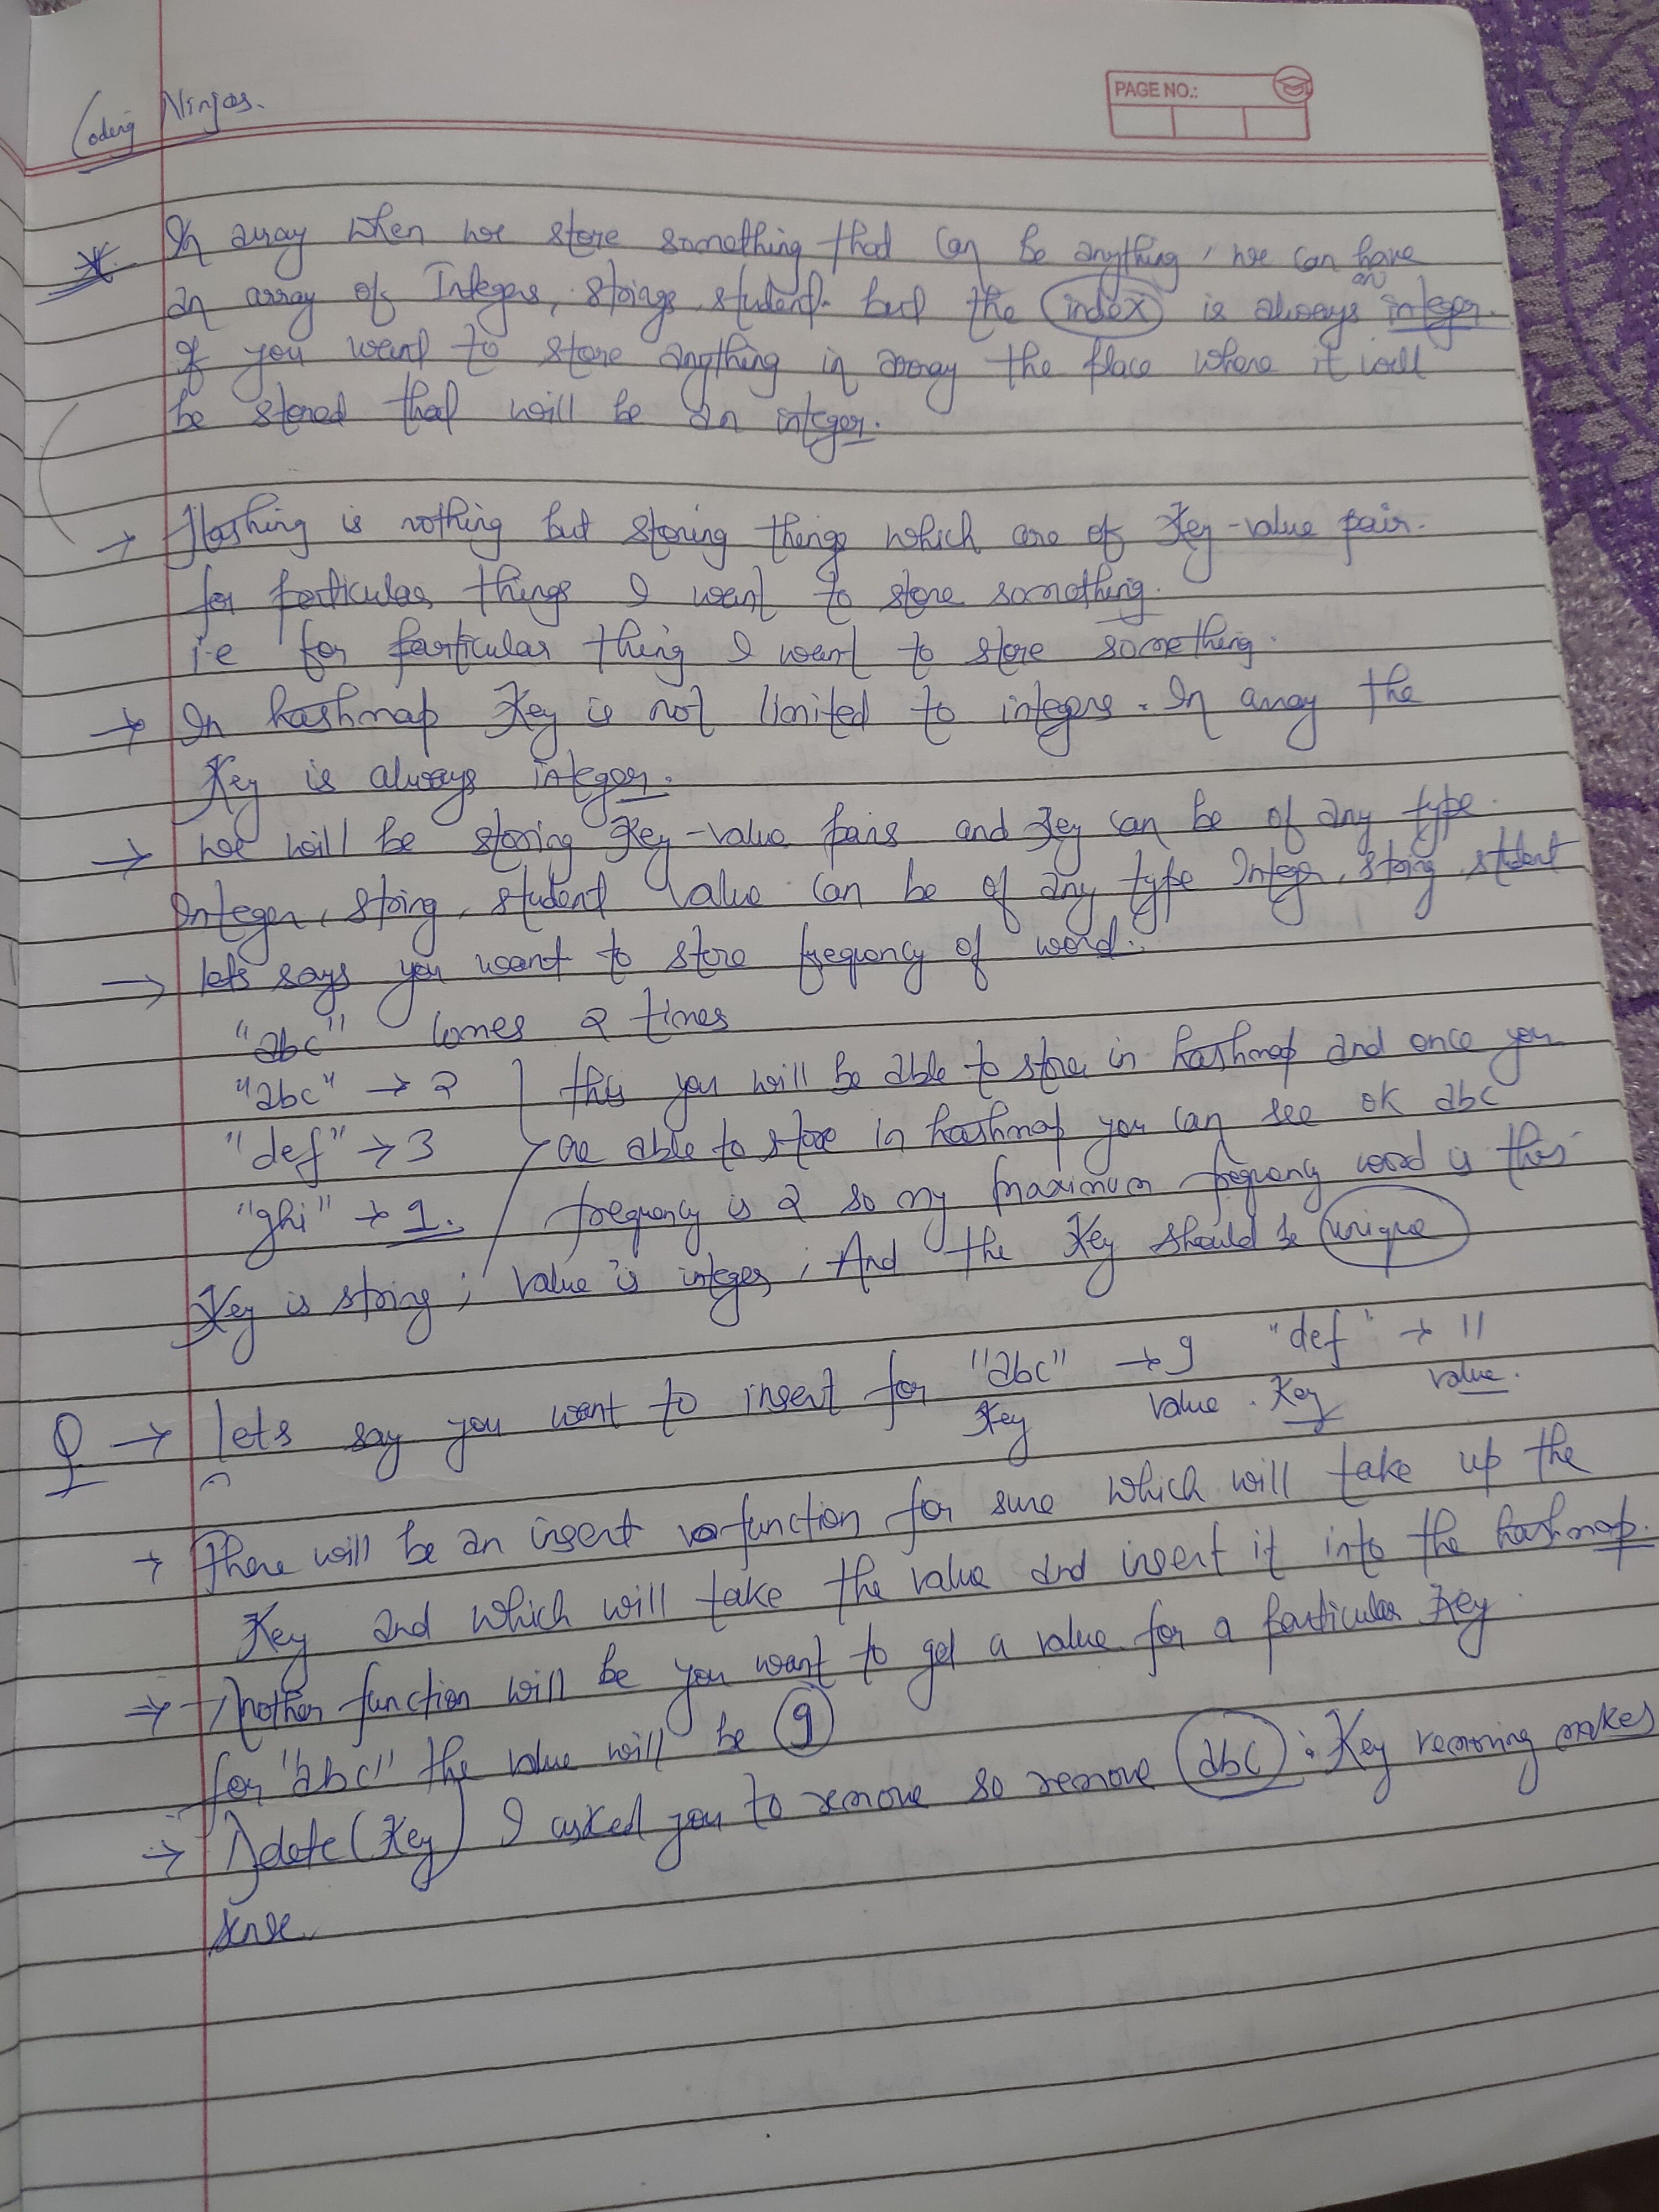 Coding Ninjas.
PAGE NO.:
In array when we store something that can be anything, we can have
an array of Integers, strings, student. but the index is always an integer.
If you want to store anything in array the place where it will
be stored that will be an integer.
→ Hashing is nothing but storing things which are of Key-value pair.
for particular things I want to store something.
i.e for particular thing I want to store something.
→ In hashmap Key is not limited to integers. In array the
Key is always integer.
→ we will be storing Key-value pairs and Key can be of any type
Integer, string, student value can be of any type Integer, string, student
→ lets says you want to store freqency of word.
"abc" comes 2 times
"abc" → 2 this you will be able to store in hashmap and once you
"def" → 3 are able to store in hashmap you can see ok abc
"ghi" → 1. frequency is 2 so my maximum frequency word is this
Key is string; value is integer, And the Key should be unique
Q → lets say you want to insert for "abc" → 9 "def" → 11
Key value. Key value.
→ There will be an insert function for sure which will take up the
Key and which will take the value and insert it into the hashmap.
⇒ Another function will be you want to get a value for a particular Key
for "abc" the value will be 9
→ (Key) I asked you to remove so remove abc : Key removing makes
sense.